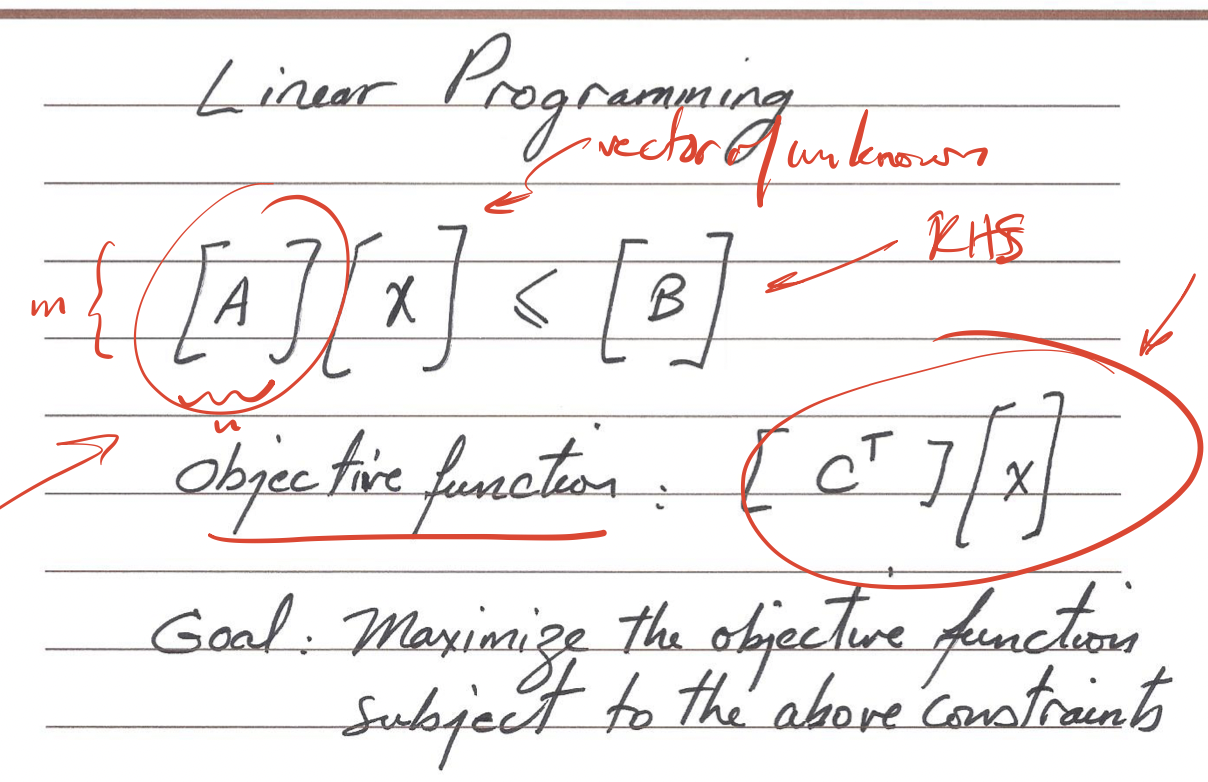 Linear Programming
vector of unknown
RHS
m { [A] [X] ≤ [B]
n
Objective function : [ C^T ] [X]
Goal: Maximize the objective function
subject to the above constraints